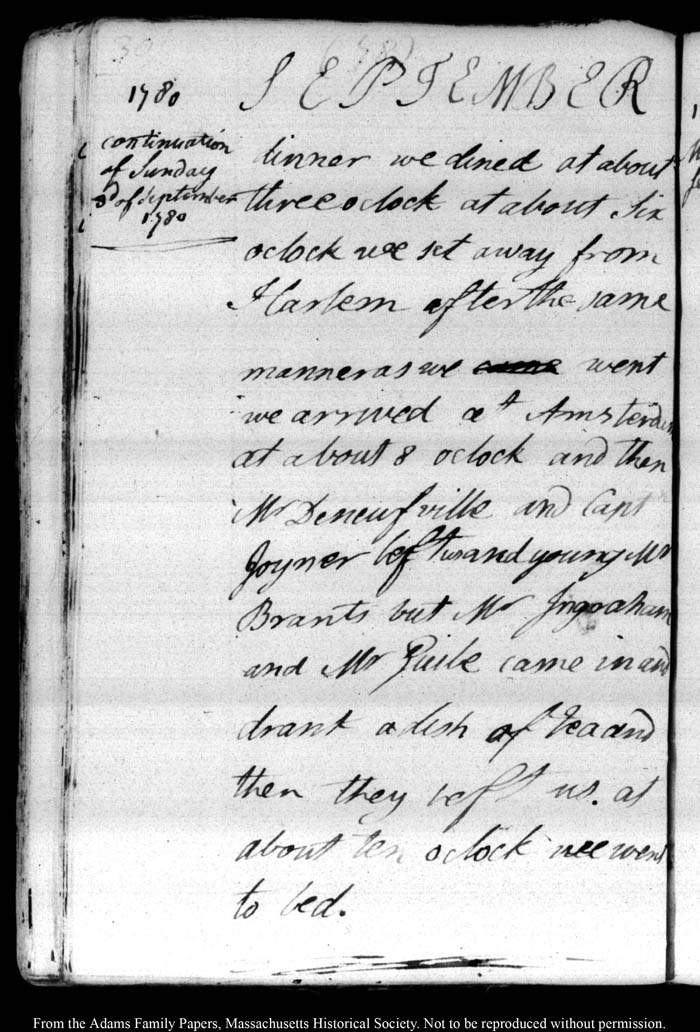 30
(38)
1780
SEPTEMBER
continuation
of Sunday
3d of September
1780
dinner we dined at about
three oclock at about Six
oclock we set away from
Harlem after the same
manner as we came went
we arrived at Amsterdam
at about 8 oclock and then
Mr Deneufville and Capt
Joyner left us and young Mr
Brants but Mr Ingraham
and Mr Guile came in and
drank a dish of tea and
then they left us. at
about ten oclock wee went
to bed.
From the Adams Family Papers, Massachusetts Historical Society. Not to be reproduced without permission.